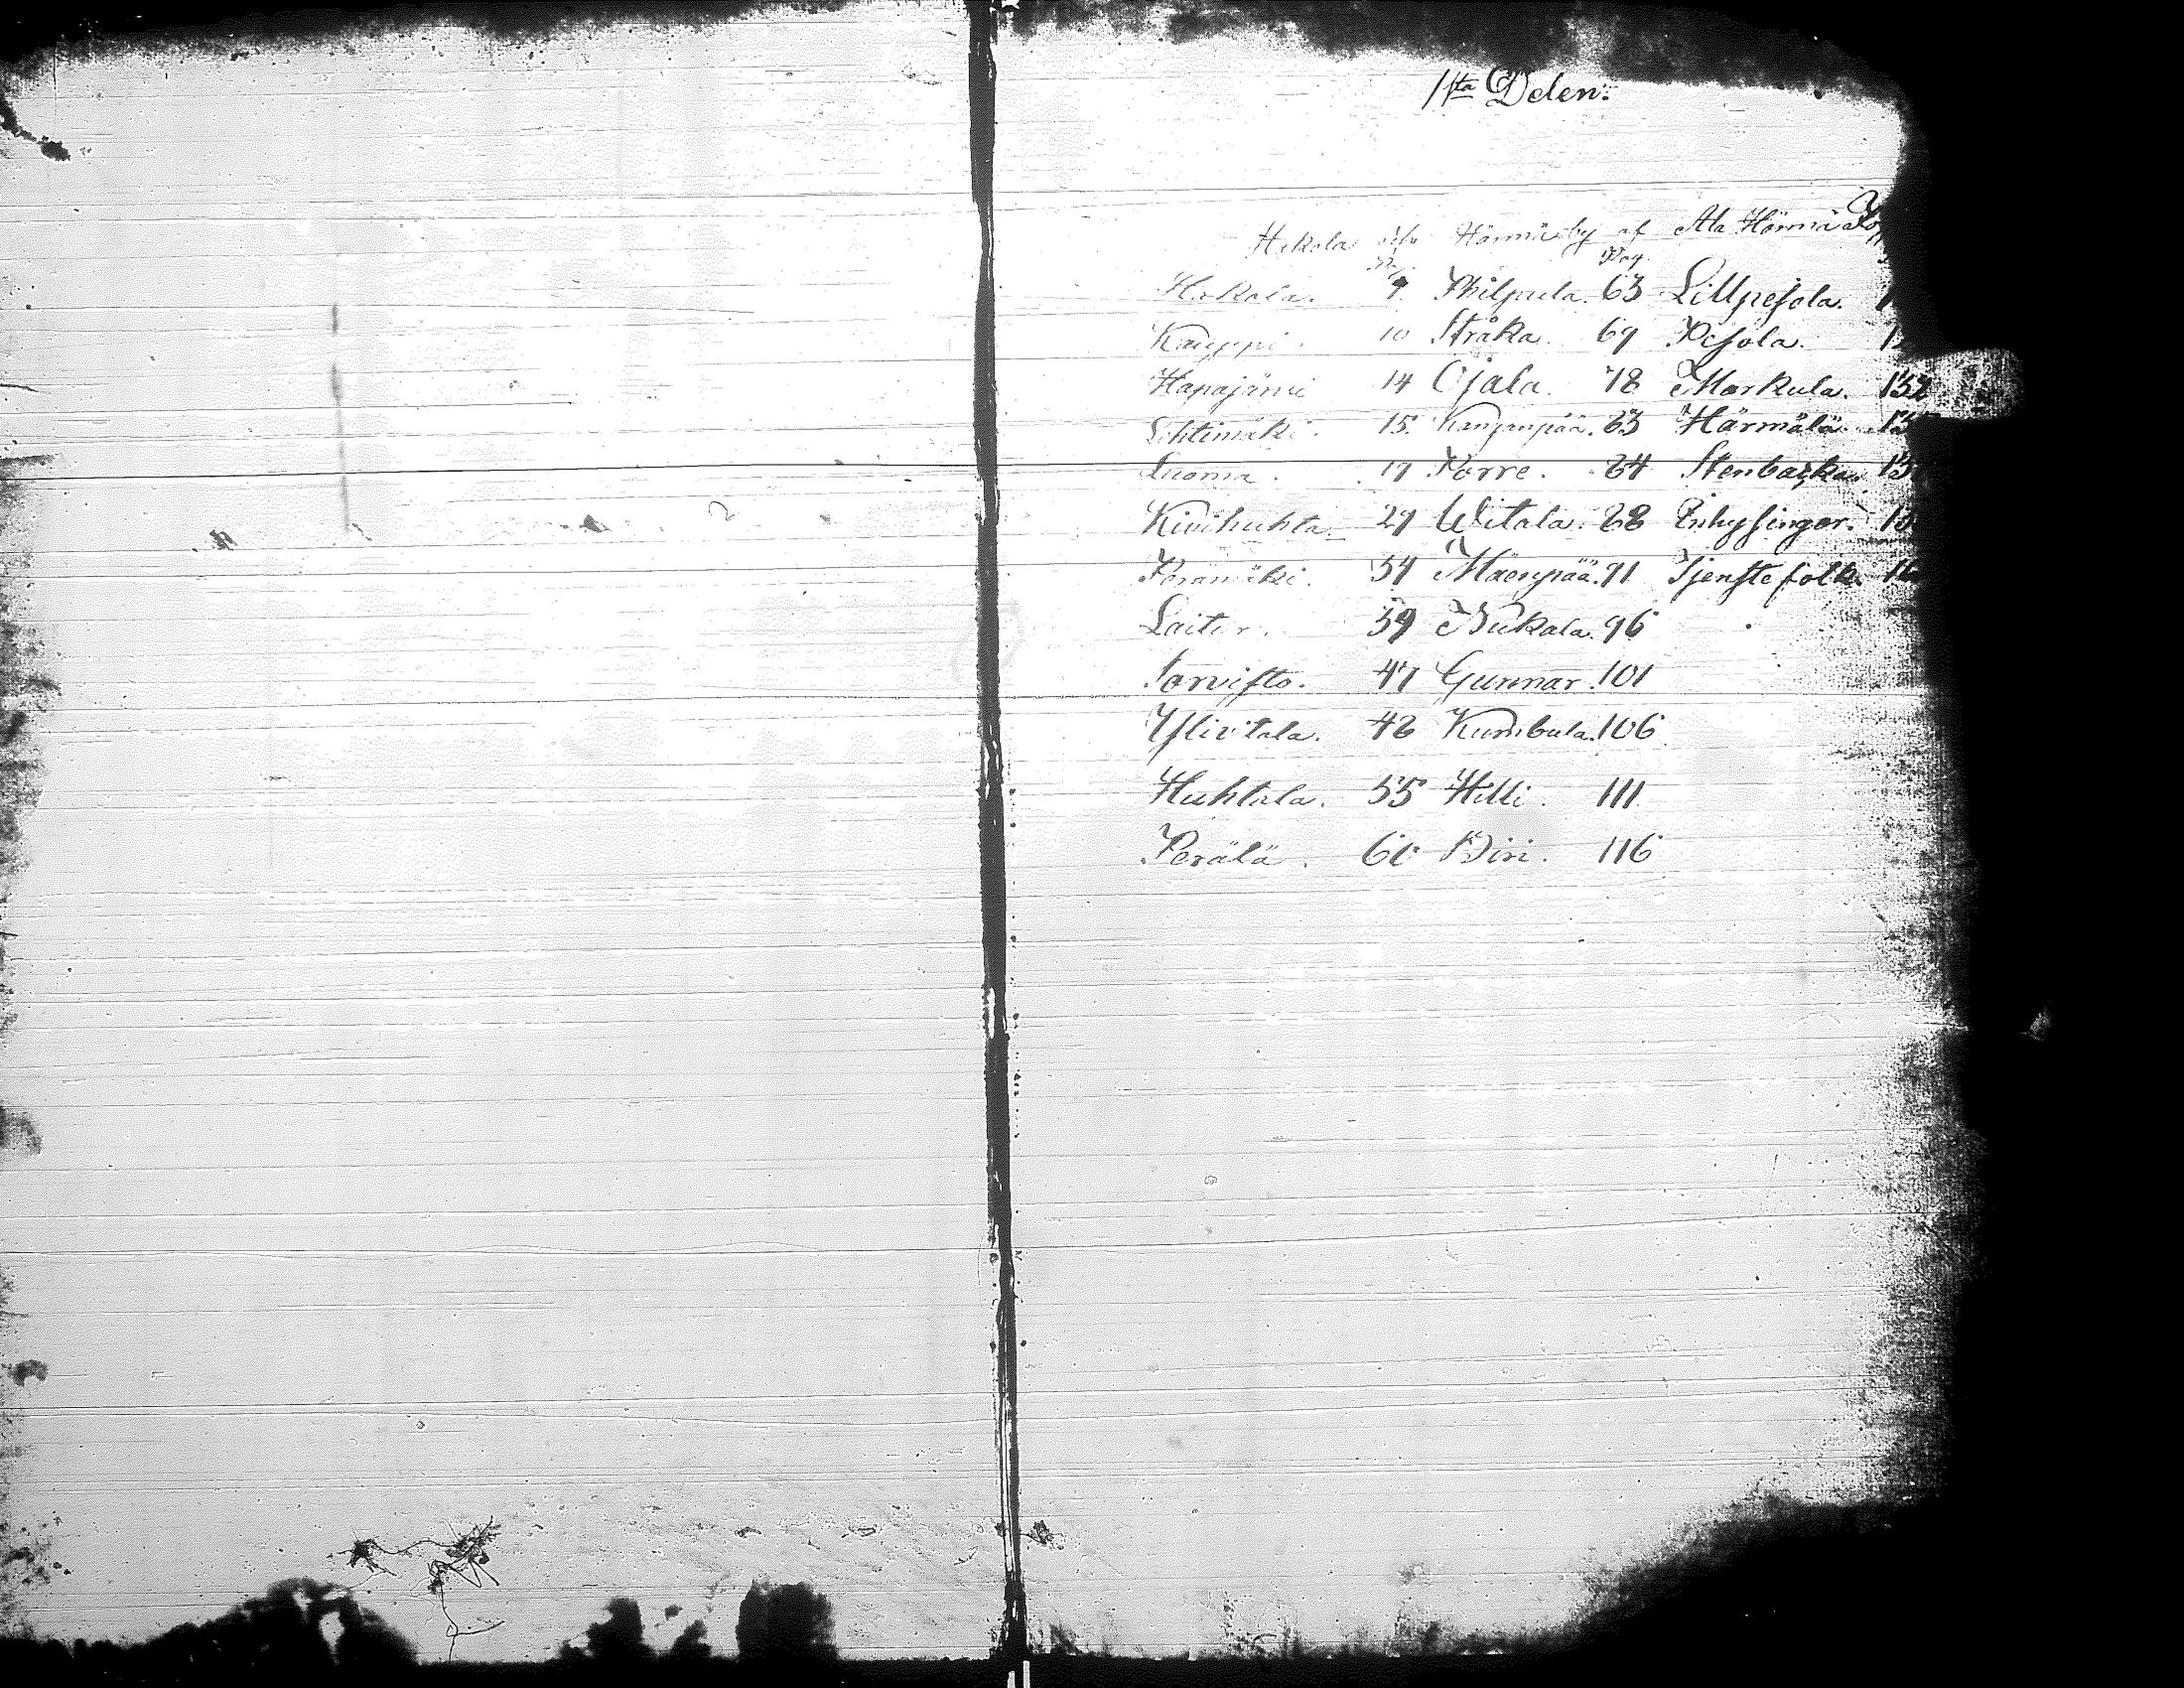 1sta Delen:
Hakola och Härmä by af Ala Härmä
Pag. Pag.
Hakola. 9 Philpula. 63 Lillpesola.
Kauppi. 10 Stråka. 69 Pesola.
Hapajärvi 14 Ojala. 78 Markula. 132
Lihtimäki. 15. Kanganpää. 83 Härmälä.
Luoma. 19 Porre. 84 Stenbacka.
Kivihuhta. 29 Witala. 88 Inhysingar.
Peramäki. 34 Mäenpää. 91 Tjenstefolk.
Laitur. 39 Kukola. 96
Sarvisto. 47 Gunnar. 101
Ylivitala. 48 Kumbula. 106
Huhtala. 55 Hilli. 111
Perälä. 60 Biri. 116